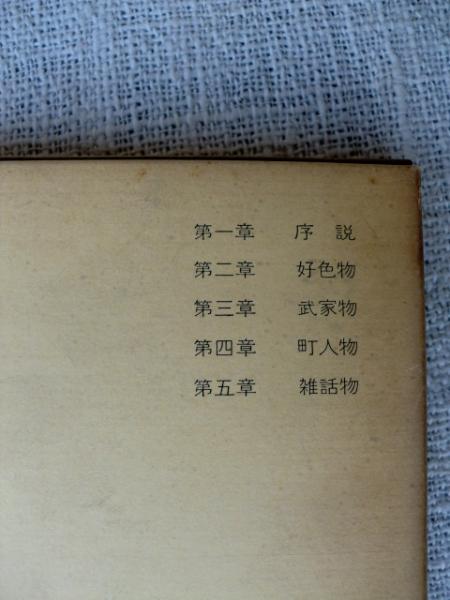 第一章 序説
第二章 好色物
第三章 武家物
第四章 町人物
第五章 雑話物